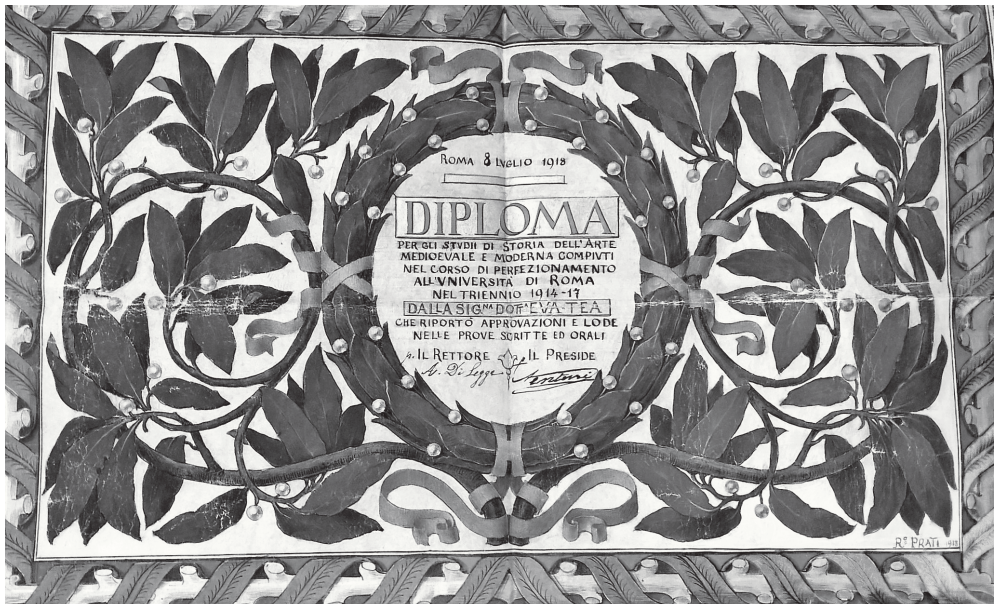 ROMA 8 LVGLIO 1918
DIPLOMA
PER GLI STVDII DI STORIA DELL'ARTE
MEDIOEVALE E MODERNA COMPIVTI
NEL CORSO DI PERFEZIONAMENTO
ALL'VNIVERSITÀ DI ROMA
NEL TRIENNIO 1914-17
DALLA SIG.NA DOTT.A EVA·TEA
CHE RIPORTÒ APPROVAZIONI E LODE
NELLE PROVE SCRITTE ED ORALI
p. IL RETTORE IL PRESIDE
A. Di Legge
R.º PRATI 1918